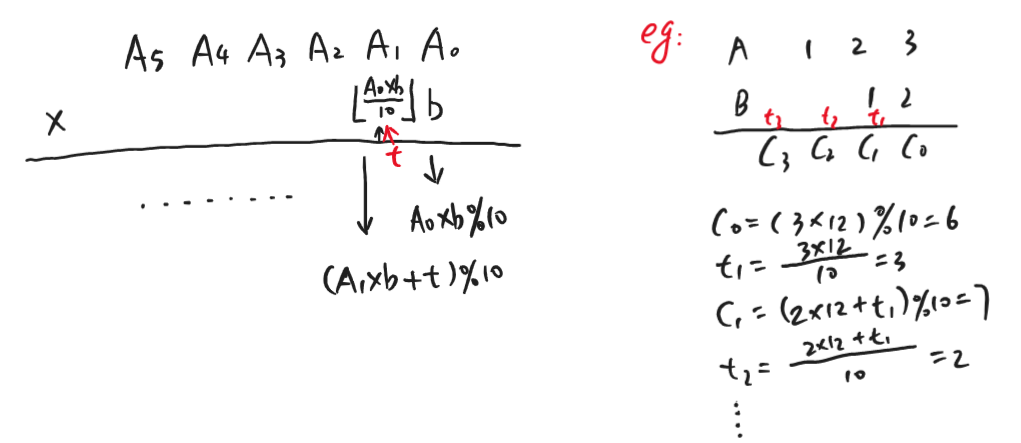 A₅ A₄ A₃ A₂ A₁ A₀
⌊A₀xb/10⌋ b
x
t
........
A₀xb%10
(A₁xb+t)%10
eg:
A 1 2 3
B 1 2
t₃ t₂ t₁
C₃ C₂ C₁ C₀
C₀=(3×12)%10=6
t₁=3×12/10=3
C₁=(2×12+t₁)%10=7
t₂=2×12+t₁/10=2
⋮